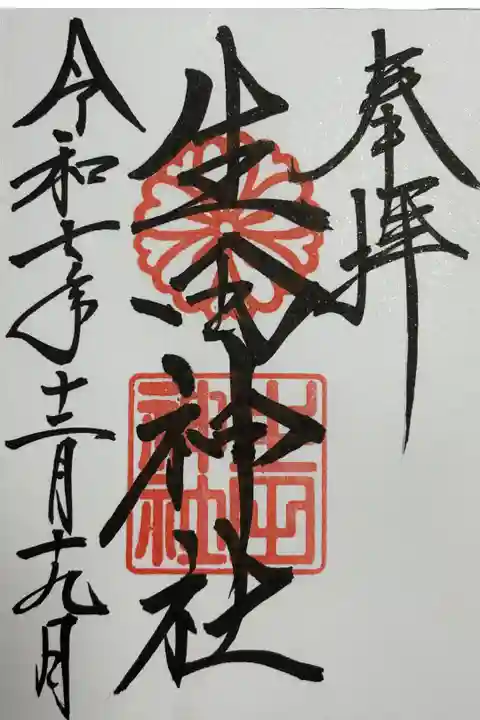 奉拝
生田神社
生田神社
令和七年十二月十九日